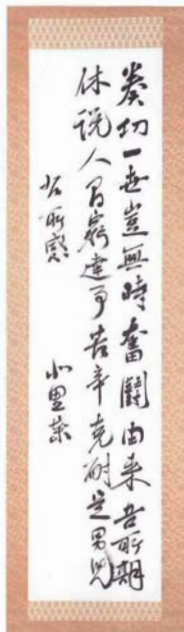 奏功一世豈無時奮闘由来吾所期
休説人間窮達事苦辛克耐是男児
所感
小里